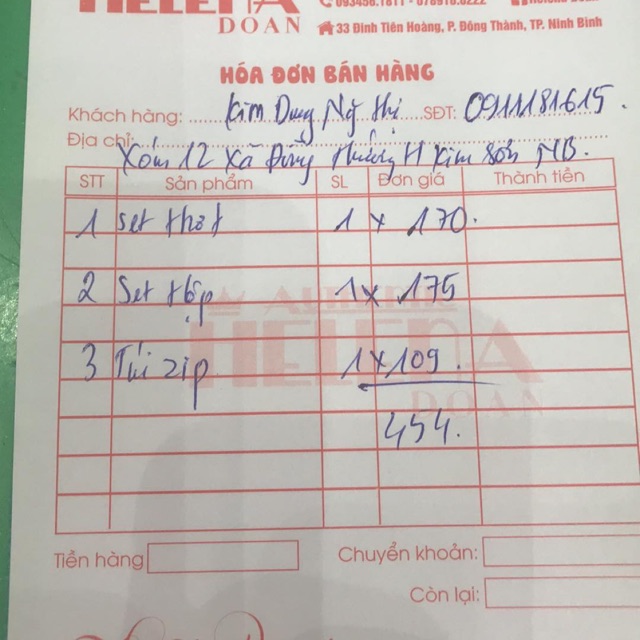 HELENA
DOAN
33 Đinh Tiên Hoàng, P. Đông Thành, TP. Ninh Bình
HÓA ĐƠN BÁN HÀNG
Khách hàng: Kim Dung Ng̃ Thị SĐT: 0911181615.
Địa chỉ: Xóm 12 Xã Đồng Hướng H Kim Sơn NB.
STT Sản phẩm SL Đơn giá Thành tiền
1 Set thơt 1 x 170.
2 Set hộp 1 x 175
3 Túi zip 1 x 109.
454.
AUTHENTIC
HELENA
DOAN
Tiền hàng Chuyển khoản:
Còn lại: